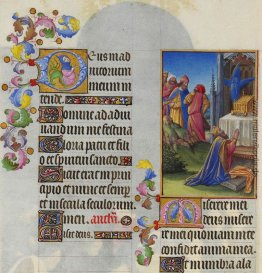 Deus in ad
iutorium
meum in
tende.
Domine ad adiu
vandum me festina
Gloria patri et fili
o et spiritui sancto.
Sicut erat in princi
pio et nunc et semp
et in secula seculorum.
men. antiena
Miserere
Miserere mei
deus misere
re mei quoniam in te
confidit anima mea.
Et in umbra ala